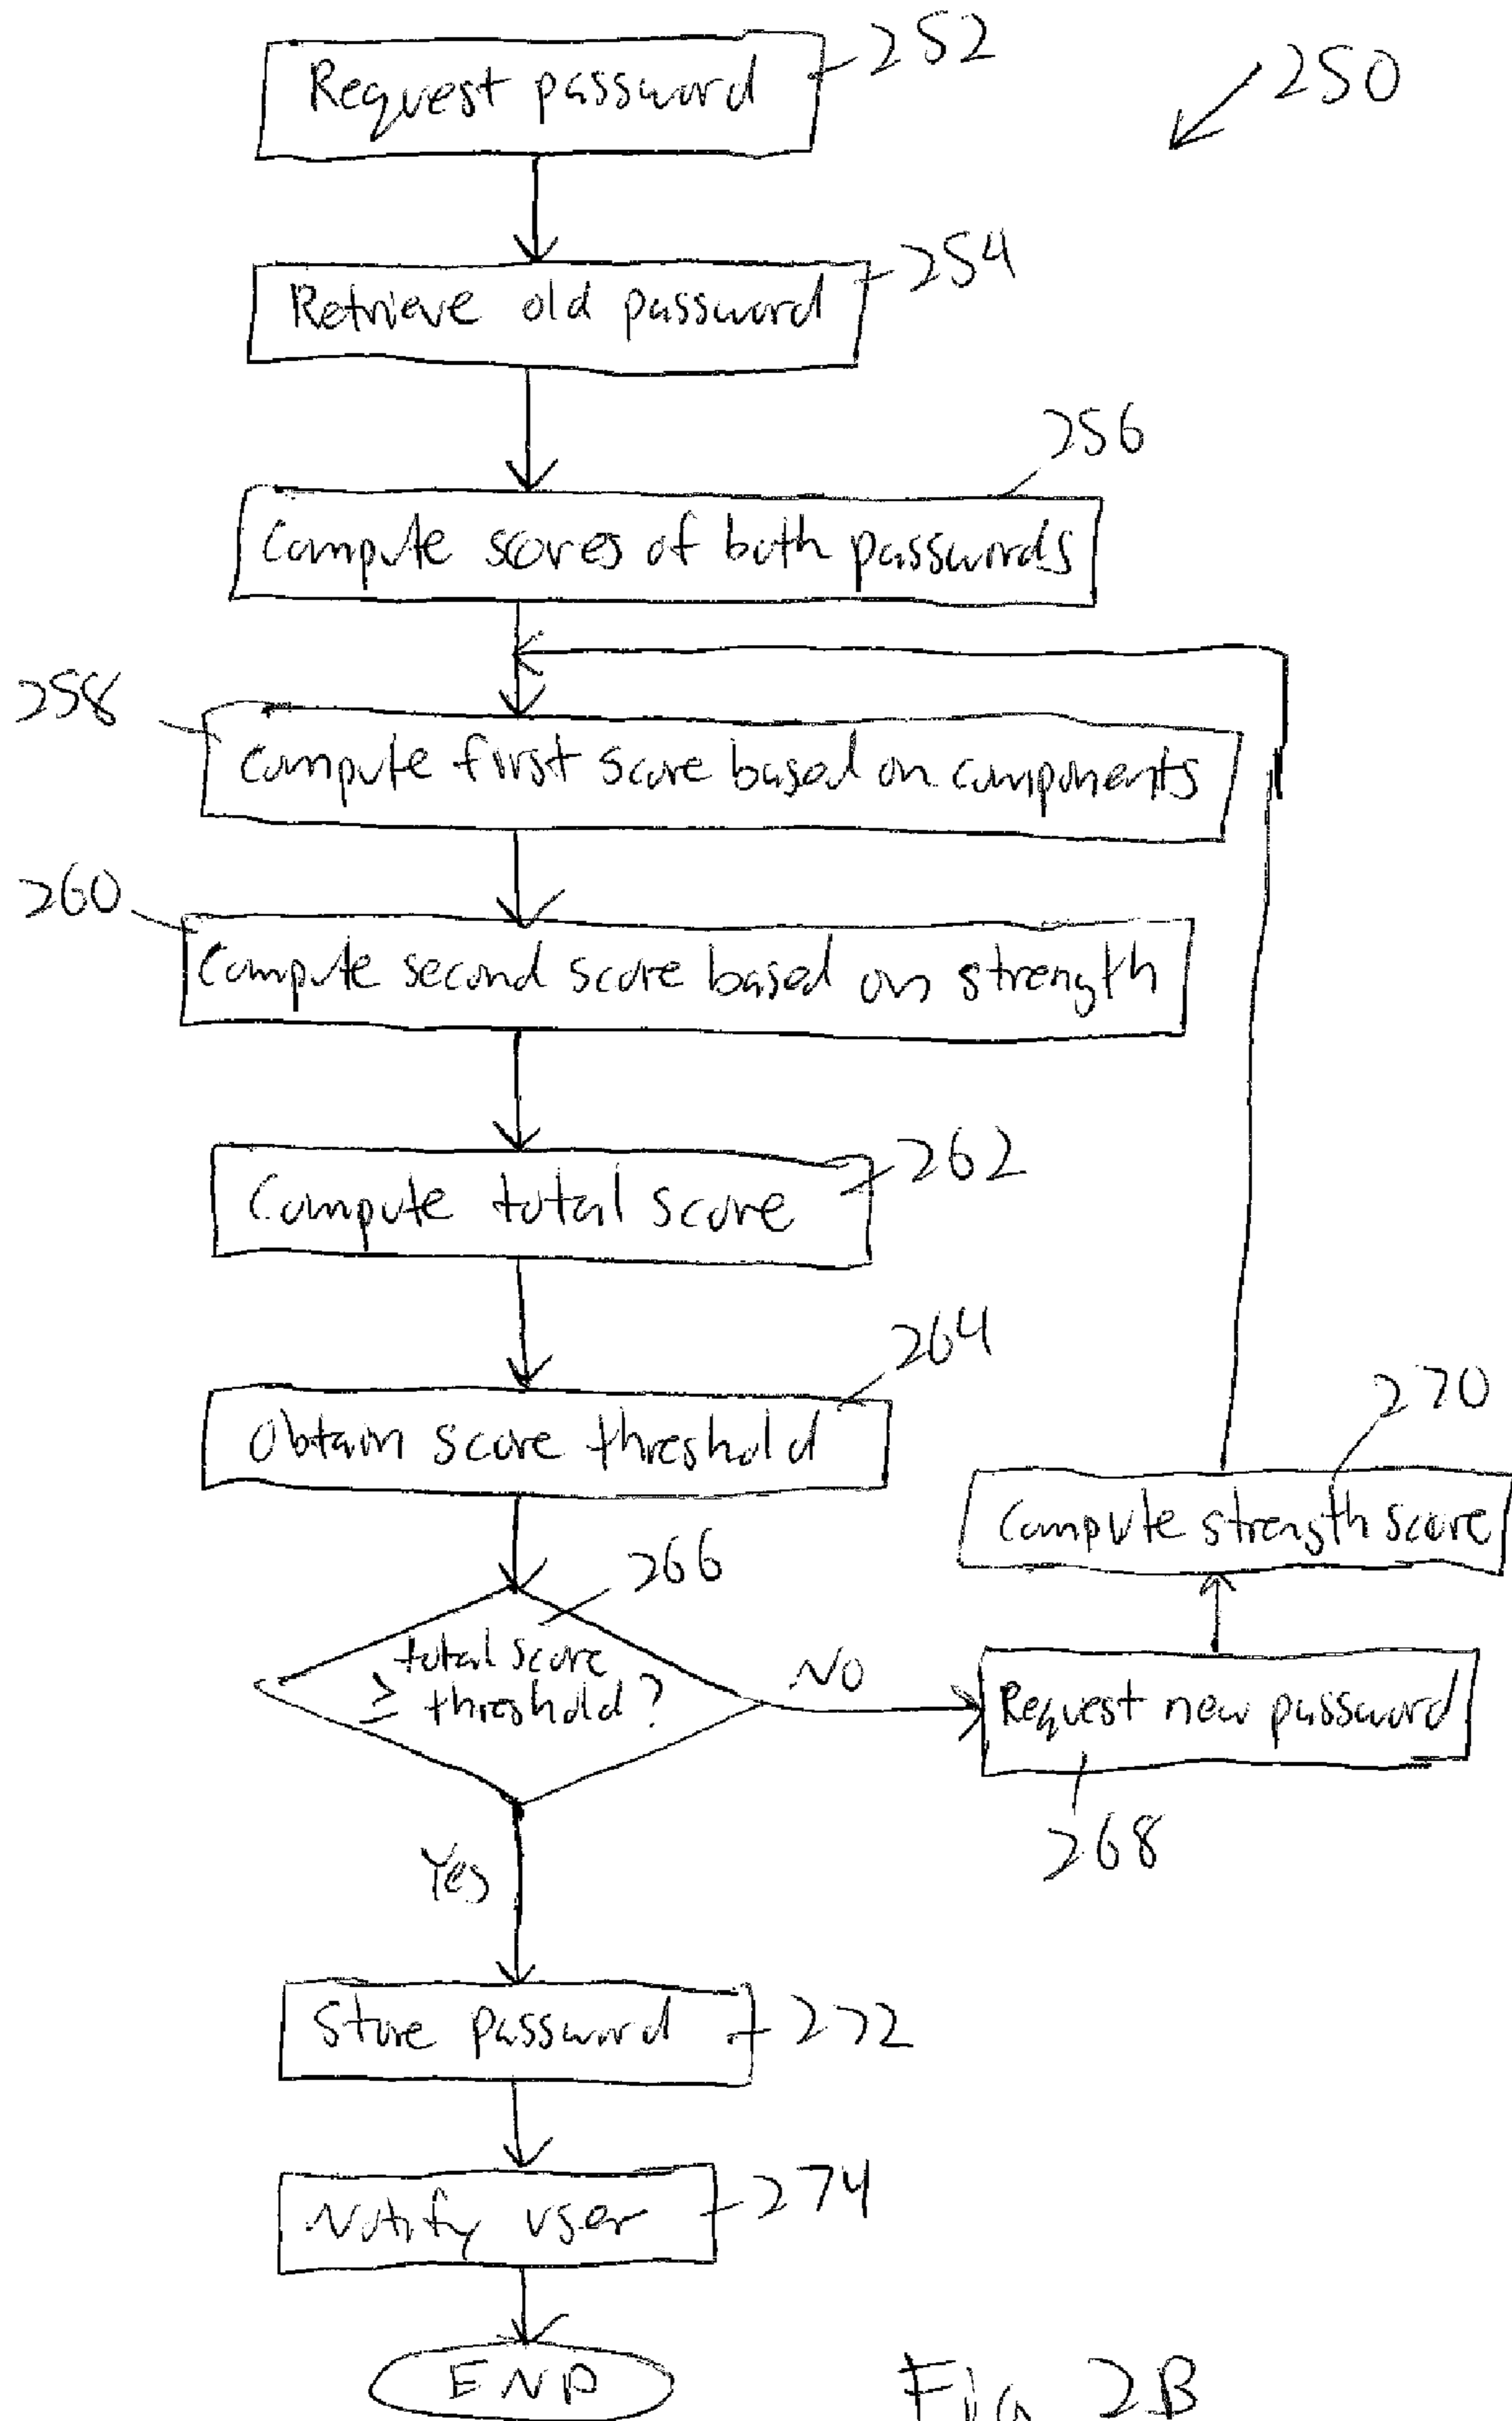 Request password
252
250
Retrieve old password
254
256
Compute scores of both passwords
258
Compute first score based on components
260
Compute second score based on strength
Compute total score
262
264
Obtain score threshold
270
Compute strength score
266
total score
≥ threshold?
NO
Request new password
268
Yes
Store password
272
Notify user
274
END
Fig 2B